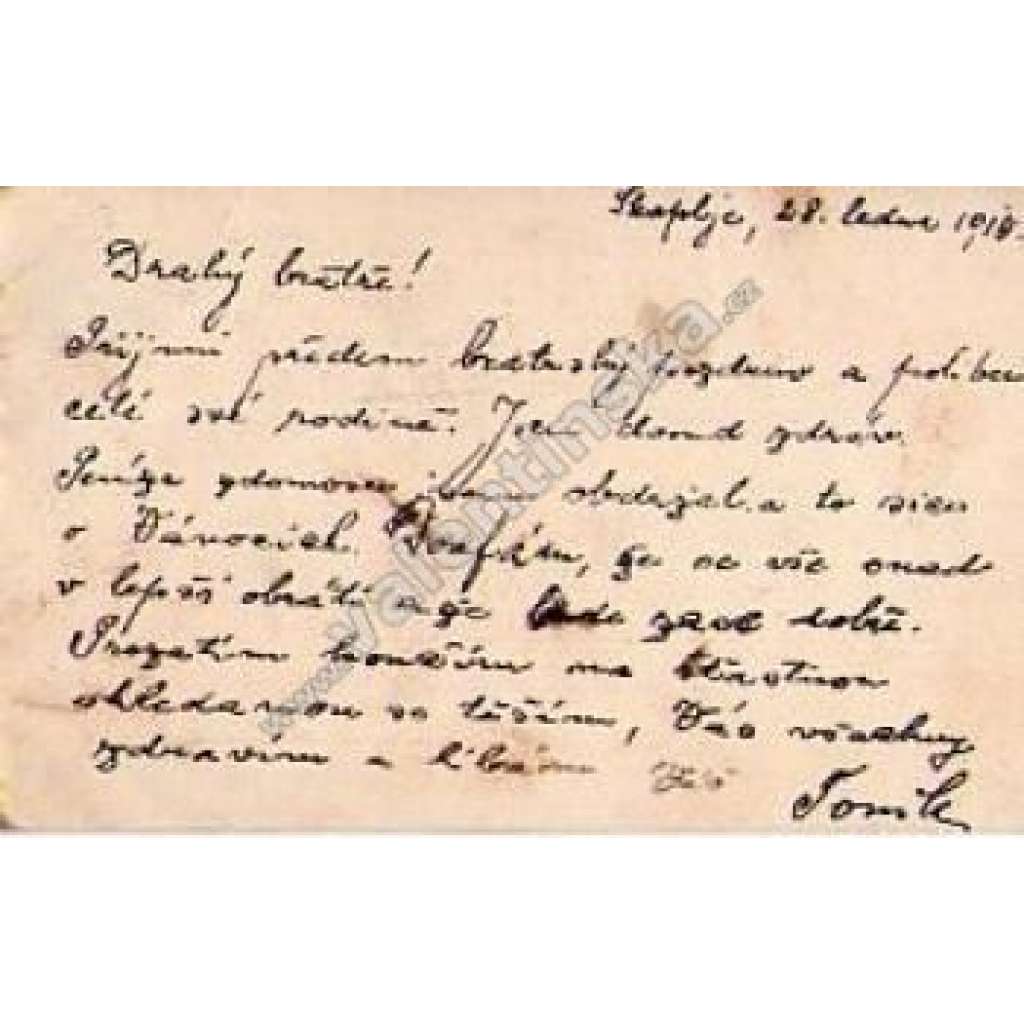 Skoplje, 28. ledna 1919.
Drahý bratře!
Přijmi předem bratrský pozdrav a
celé své rodině. Jsem dosud zdráv.
Peníze z domova jsem obdržel a to sice
o Vánocích. Doufám, že se vše snad
v lepší obrátí a že bude zase dobře.
Prozatím končím na šťastnou
shledanou se těším, Vás všechny
zdravím a líbám Váš
Toník
www.valentinska.cz